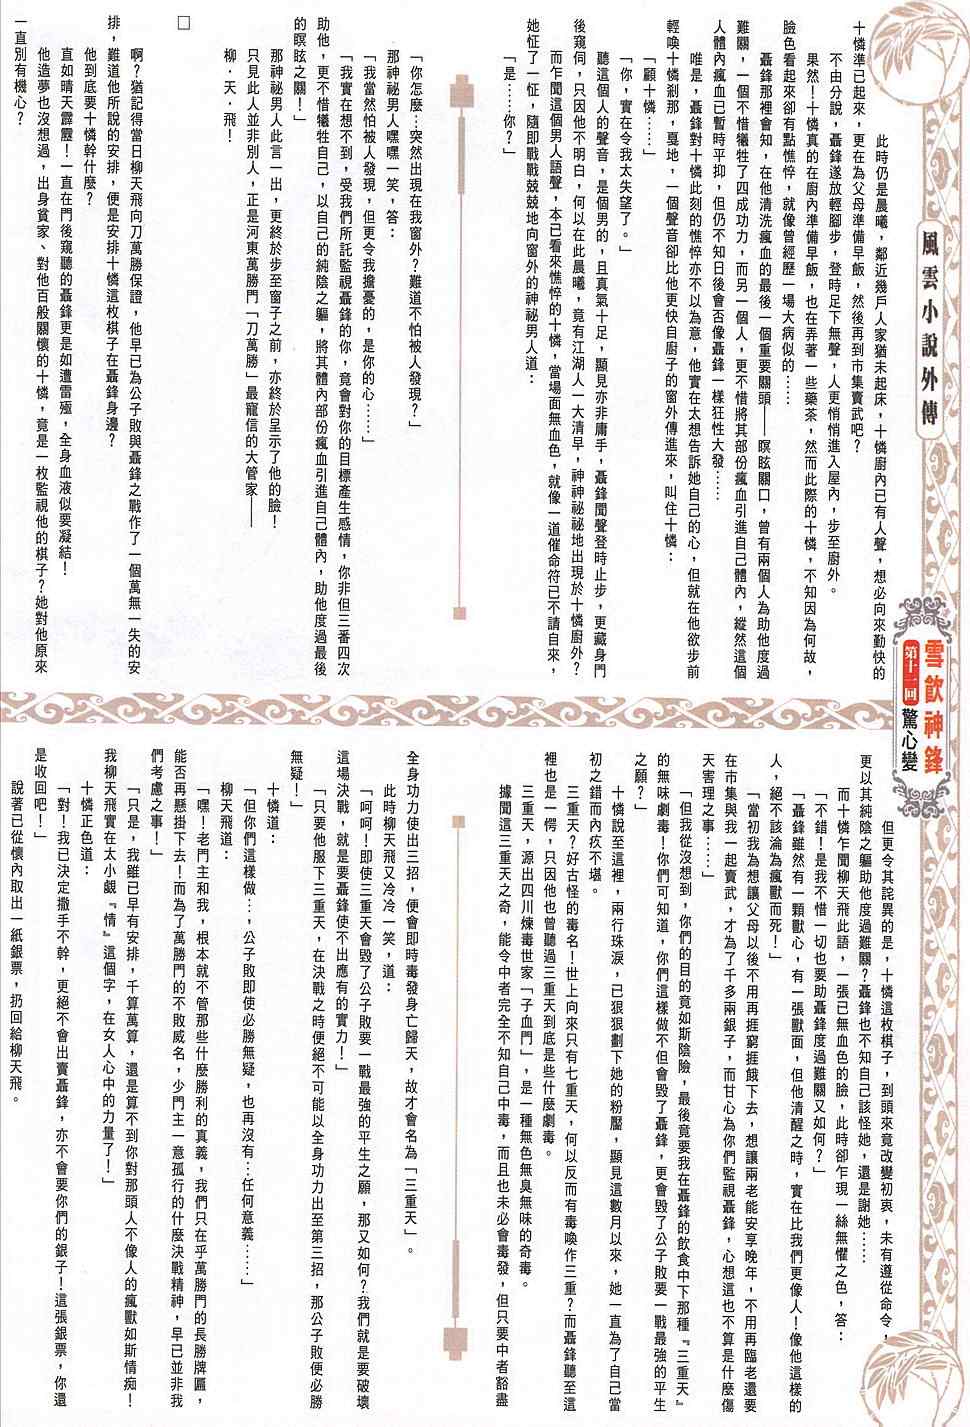 風雲小說外傳
雪飲神鋒
第十一回
驚心變
此時仍是晨曦，鄰近幾戶人家猶未起床，十憐廚內已有人聲，想必向來勤快的
十憐準已起來，更在為父母準備早飯，然後再到市集賣武吧？
不由分說，聶鋒遂放輕腳步，登時足下無聲，人更悄悄進入屋內，步至廚外。
果然！十憐真的在廚內準備早飯，也在弄著一些藥茶，然而此際的十憐，不知因為何故，
臉色看起來卻有點憔悴，就像曾經歷一場大病似的……
聶鋒那裡會知，在他清洗瘋血的最後一個重要關頭——瞑眩關口，曾有兩個人為助他度過
難關，一個不惜犧牲了四成功力，而另一個人，更不惜將其部份瘋血引進自己體內，縱然這個
人體內瘋血已暫時平抑，但仍不知日後會否像聶鋒一樣狂性大發……
唯是，聶鋒對十憐此刻的憔悴亦不以為意，他實在太想告訴她自己的心，但就在他欲步前
輕喚十憐剎那，戛地，一個聲音卻比他更快自廚子的窗外傳進來，叫住十憐：
「顧十憐……」
「你，實在令我太失望了。」
聽這個人的聲音，是個男的，且真氣十足，顯見亦非庸手，聶鋒聞聲登時止步，更藏身門
後窺伺，只因他不明白，何以在此晨曦，竟有江湖人一大清早，神神祕祕地出現於十憐廚外？
而乍聞這個男人語聲，本已看來憔悴的十憐，當場面無血色，就像一道催命符已不請自來，
她怔了一怔，隨即戰戰兢兢地向窗外的神祕男人道：
「是……你？」
「你怎麼…突然出現在我窗外？難道不怕被人發現？」
那神祕男人嘿嘿一笑，答：
「我當然怕被人發現，但更令我擔憂的，是你的心……」
「我實在想不到，受我們所託監視聶鋒的你，竟會對你的目標產生感情，你非但三番四次
助他，更不惜犧牲自己，以自己的純陰之軀，將其體內部份瘋血引進自己體內，助他度過最後
的瞑眩之關！」
那神祕男人此言一出，更終於步至窗子之前，亦終於呈示了他的臉！
只見此人並非別人，正是河東萬勝門「刀萬勝」最寵信的大管家——
柳．天．飛！
□
啊？猶記得當日柳天飛向刀萬勝保證，他早已為公子敗與聶鋒之戰作了一個萬無一失的安
排，難道他所說的安排，便是安排十憐這枚棋子在聶鋒身邊？
他到底要十憐幹什麼？
直如晴天霹靂！一直在門後窺聽的聶鋒更是如遭雷殛，全身血液似要凝結！
他造夢也沒想過，出身貧家、對他百般關懷的十憐，竟是一枚監視他的棋子？她對他原來
一直別有機心？
但更令其詫異的是，十憐這枚棋子，到頭來竟改變初衷，未有遵從命令，
更以其純陰之軀助他度過難關？聶鋒也不知自己該怪她，還是謝她……
而十憐乍聞柳天飛此語，一張已無血色的臉，此時卻乍現一絲無懼之色，答：
「不錯！是我不惜一切也要助聶鋒度過難關又如何？」
「聶鋒雖然有一顆獸心，有一張獸面，但他清醒之時，實在比我們更像人！像他這樣的
人，絕不該淪為瘋獸而死！」
「當初我為想讓父母以後不用再捱窮捱餓下去，想讓兩老能安享晚年，不用再臨老還要
在市集與我一起賣武，才為了千多兩銀子，而甘心為你們監視聶鋒，心想這也不算是什麼傷
天害理之事……」
「但我從沒想到，你們的目的竟如斯陰險，最後竟要我在聶鋒的飲食中下那種『三重天』
的無味劇毒！你們可知道，你們這樣做不但會毀了聶鋒，更會毀了公子敗要一戰最強的平生
之願？」
十憐說至這裡，兩行珠淚，已狠狠劃下她的粉靨，顯見這數月以來，她一直為了自己當
初之錯而內疚不堪。
三重天？好古怪的毒名！世上向來只有七重天，何以反而有毒喚作三重？而聶鋒聽至這
裡也是一愕，只因他也曾聽過三重天到底是些什麼劇毒。
三重天，源出四川煉毒世家「子血門」，是一種無色無臭無味的奇毒。
據聞這三重天之奇，能令中者完全不知自己中毒，而且也未必會毒發，但只要中者豁盡
全身功力使出三招，便會即時毒發身亡歸天，故才會名為「三重天」。
此時柳天飛又冷冷一笑，道：
「呵呵！即使三重天會毀了公子敗要一戰最強的平生之願，那又如何？我們就是要破壞
這場決戰，就是要聶鋒使不出應有的實力！」
「只要他服下三重天，在決戰之時便絕不可能以全身功力出至第三招，那公子敗便必勝
無疑！」
十憐道：
「但你們這樣做…，公子敗即使必勝無疑，也再沒有…任何意義……」
柳天飛道：
「嘿！老門主和我，根本就不管那些什麼勝利的真義，我們只在乎萬勝門的長勝牌匾，
能否再懸掛下去！而為了萬勝門的不敗威名，少門主一意孤行的什麼決戰精神，早已並非我
們考慮之事！」
「只是，我雖已早有安排，千算萬算，還是算不到你對那頭人不像人的瘋獸如斯情痴！
我柳天飛實在太小覷『情』這個字，在女人心中的力量了！」
十憐正色道：
「對！我已決定撒手不幹，更絕不會出賣聶鋒，亦不會要你們的銀子！這張銀票，你還
是收回吧！」
說著已從懷內取出一紙銀票，扔回給柳天飛。